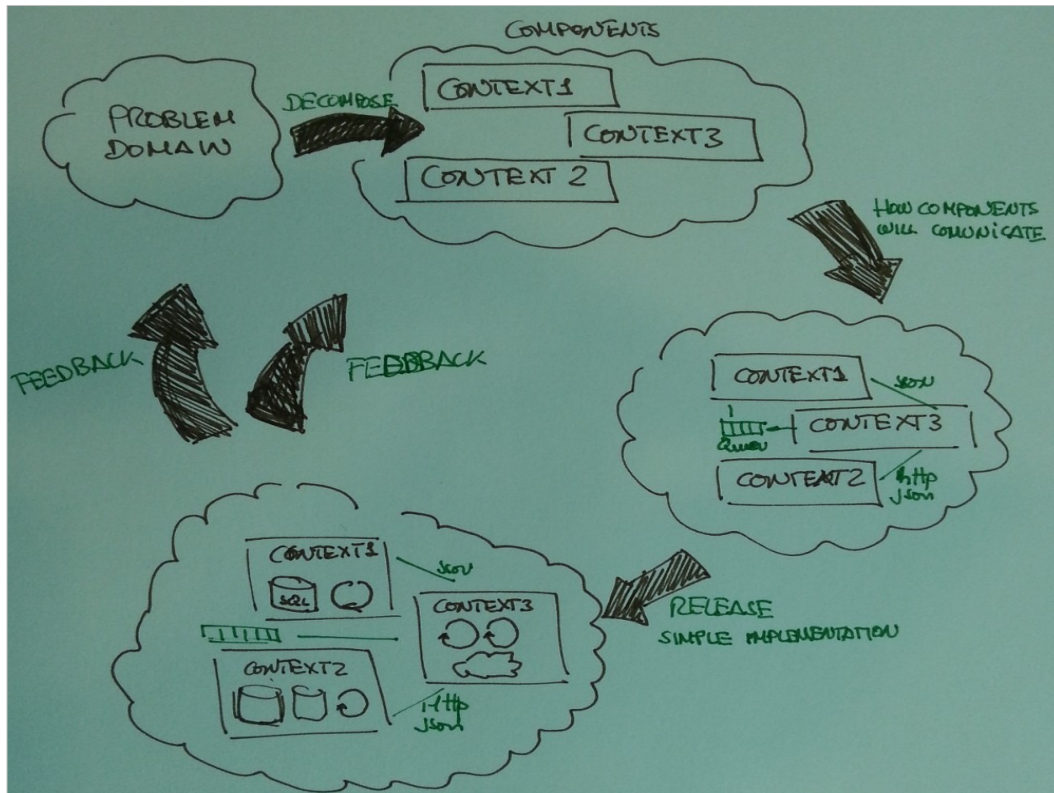 COMPONENTS
PROBLEM
DOMAIN
DECOMPOSE
CONTEXT1
CONTEXT3
CONTEXT 2
HOW COMPONENTS
WILL COMUNICATE
FEEDBACK
FEEDBACK
CONTEXT1
JSON
CONTEXT3
CONTEXT2
http
json
CONTEXT1
SQL
JSON
CONTEXT3
CONTEXT2
Http
json
RELEASE
SIMPLE IMPLEMENTATION